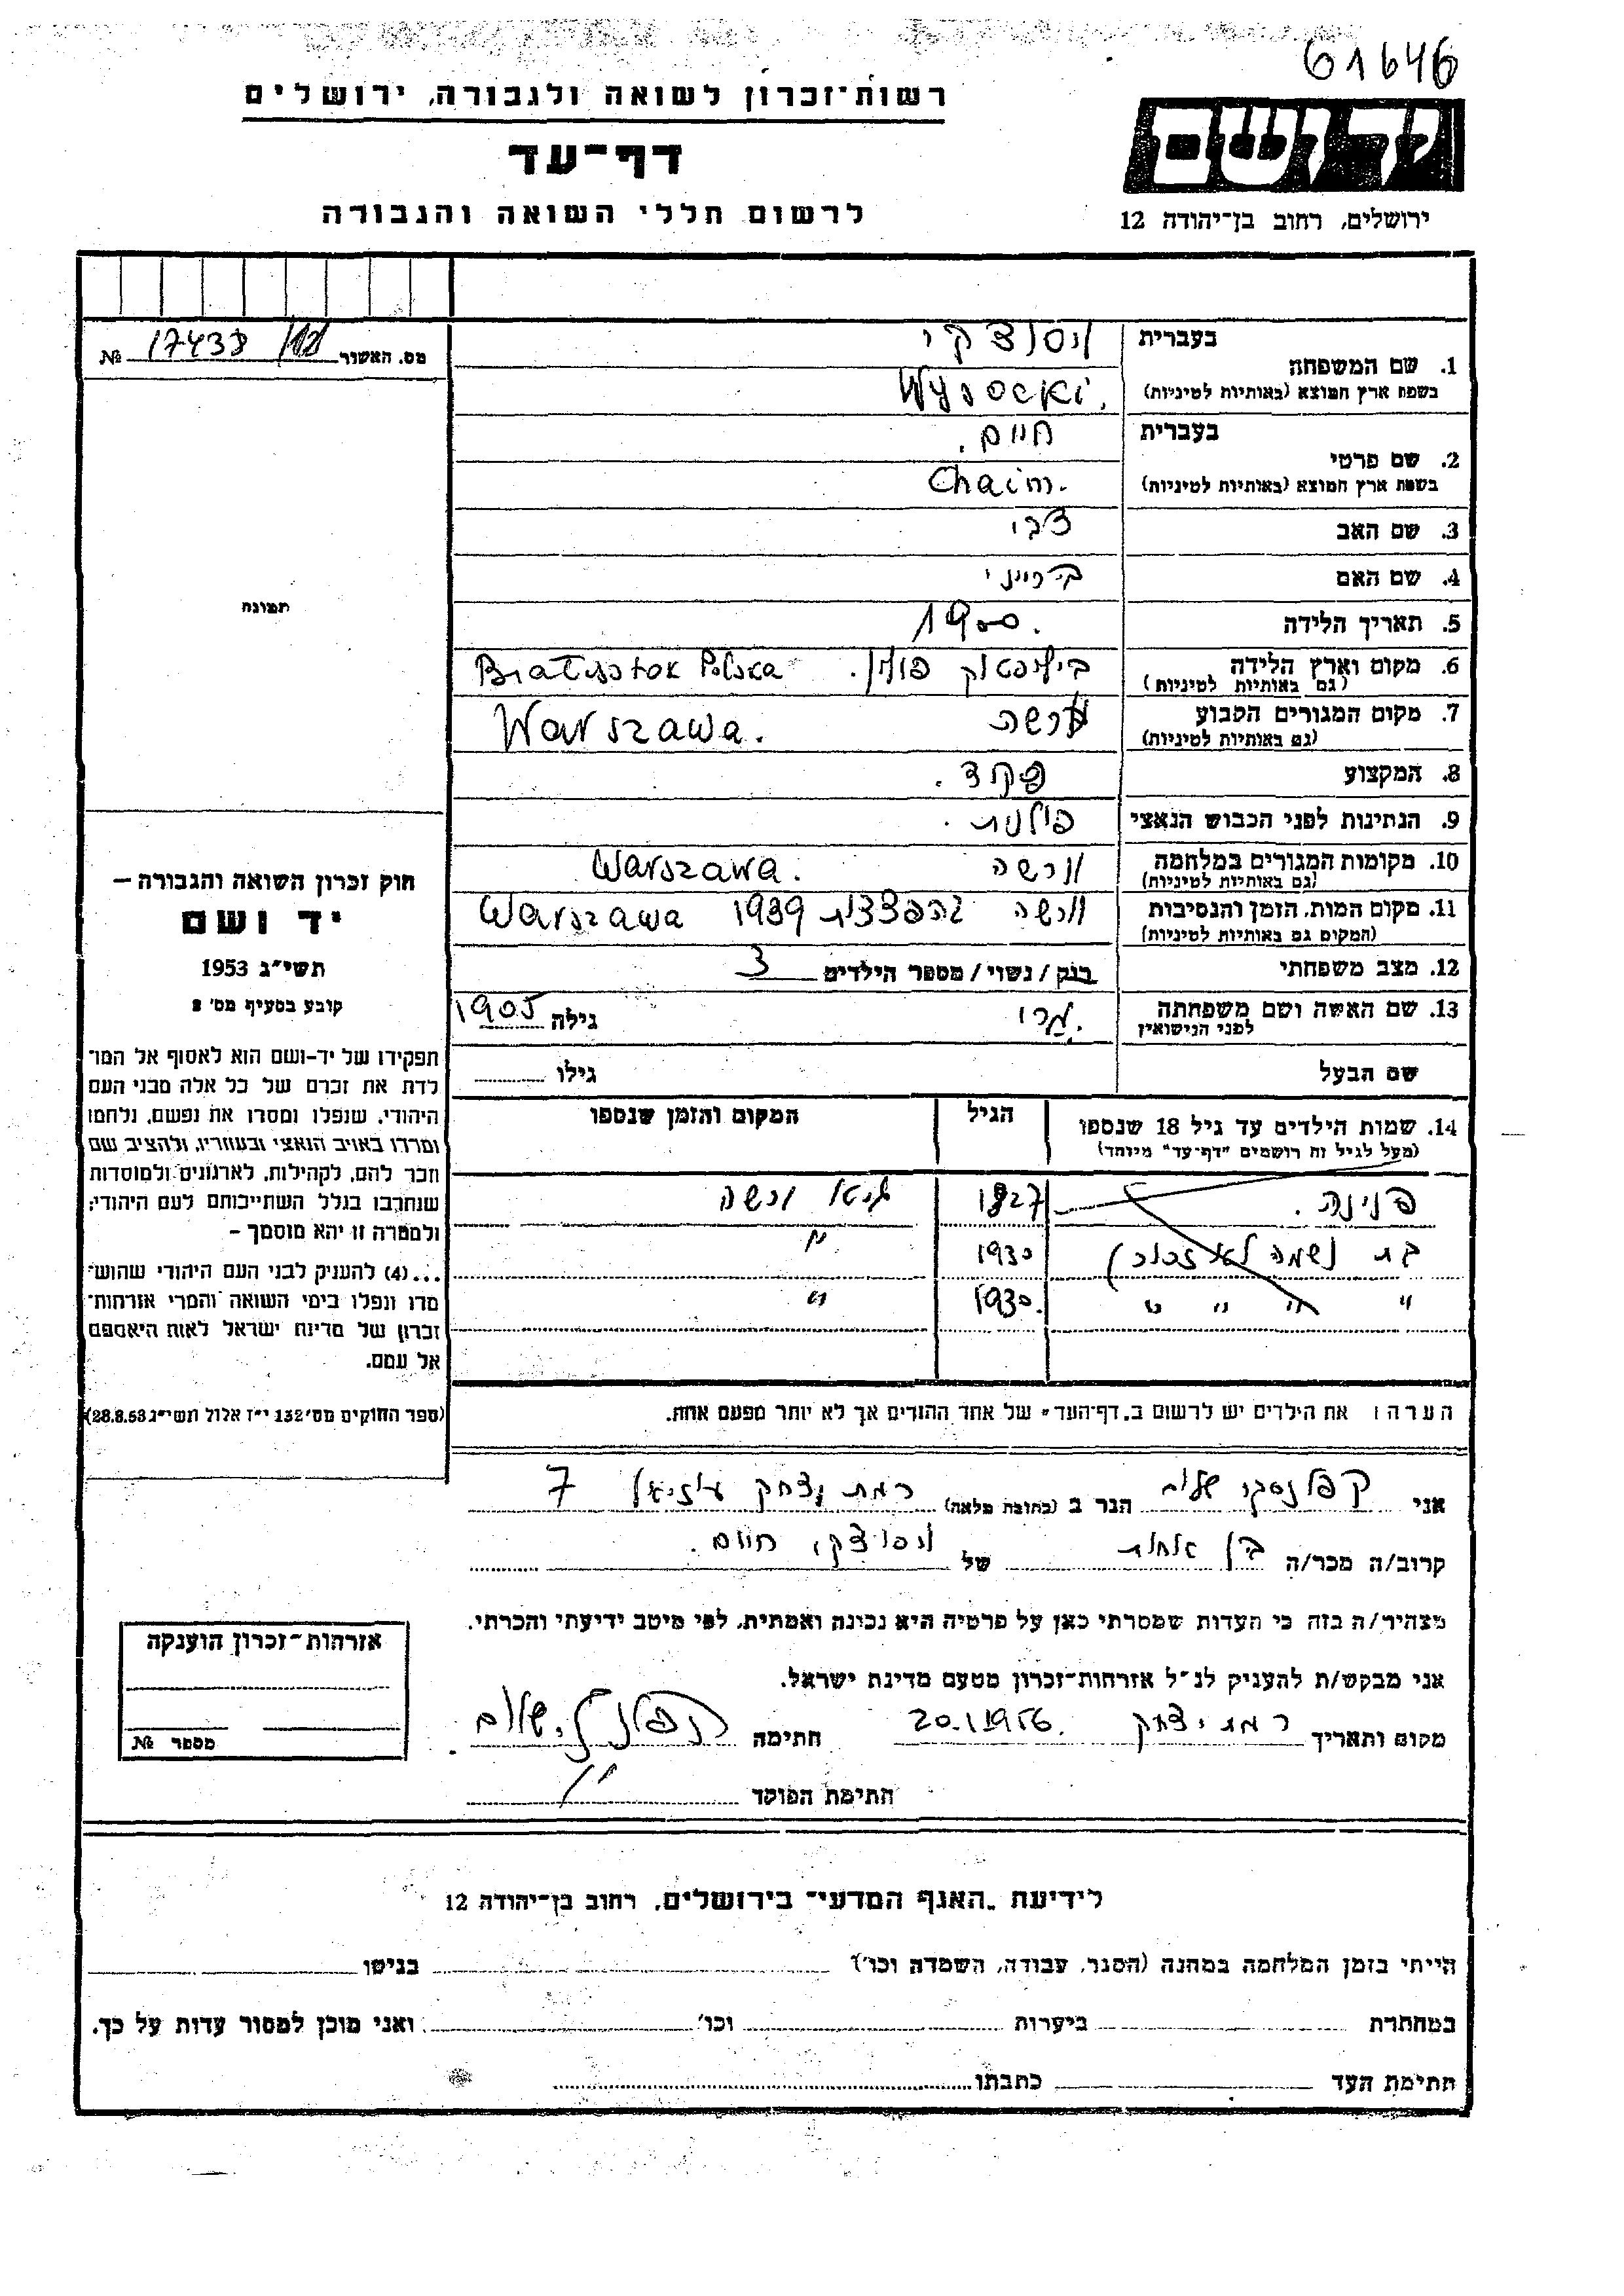 61646
רשות-זכרון לשואה ולגבורה, ירושלים
דף-עד
לרשום חללי השואה והגבורה
יד ושם
ירושלים, רחוב בן-יהודה 12
מס. האשור 17438 №
תמונה
בעברית ויסוצקי
1. שם המשפחה
בשפת ארץ המוצא (באותיות לטיניות) Wysocki.
בעברית חיים.
2. שם פרטי
בשפת ארץ המוצא (באותיות לטיניות) Chaim.
3. שם האב צבי
4. שם האם
5. תאריך הלידה 1900.
6. מקום וארץ הלידה פולין. Polska
(גם באותיות לטיניות)
7. מקום המגורים הקבוע ורשה Warszawa.
(גם באותיות לטיניות)
8. המקצוע פקיד.
9. הנתינות לפני הכבוש הנאצי פולנית.
10. מקומות המגורים במלחמה ורשה Warszawa.
(גם באותיות לטיניות)
11. מקום המות, הזמן והנסיבות ורשה בהפצצות 1939 Warszawa
(המקום גם באותיות לטיניות)
12. מצב משפחתי רנק / נשוי / מספר הילדים 3
13. שם האשה ושם משפחתה גילה 1905
לפני הנישואין
שם הבעל גילו
14. שמות הילדים עד גיל 18 שנספו הגיל המקום והזמן שנספו
(מעל לגיל זה רושמים "דף-עד" מיוחד)
פנינה. 1927 גיטו ורשה
בת (שמה לא זכור) 1930 "
" " " " 1930. "
הערה: את הילדים יש לרשום ב"דף-העד" של אחד ההורים אך לא יותר מפעם אחת.
חוק זכרון השואה והגבורה –
יד ושם
תשי"ג 1953
קובע בסעיף מס' 2
תפקידו של יד-ושם הוא לאסוף אל המו-
לדת את זכרם של כל אלה מבני העם
היהודי, שנפלו ומסרו את נפשם, נלחמו
ומרדו באויב הנאצי ובעוזריו, ולהציב שם
וזכר להם, לקהילות, לארגונים ולמוסדות
שנחרבו בגלל השתייכותם לעם היהודי;
ולמטרה זו יהא מוסמך –
...(4) להעניק לבני העם היהודי שהוש-
מדו ונפלו בימי השואה והמרי אזרחות-
זכרון של מדינת ישראל לאות היאספם
אל עמם.
(ספר החוקים מס' 132 י"ז אלול תשי"ג 28.8.53)
אני קפלנסקי שלום הגר ב (כתובת מלאה) רמת יצחק עוזיאל 7
קרוב/ה מכר/ה בן אחות של ויסוצקי חיים.
מצהיר/ה בזה כי העדות שמסרתי כאן על פרטיה היא נכונה ואמתית, לפי מיטב ידיעתי והכרתי.
אני מבקש/ת להעניק לנ"ל אזרחות-זכרון מטעם מדינת ישראל.
מקום ותאריך רמת יצחק 20.1.1956. חתימה
חתימת הפוקד
אזרחות-זכרון הוענקה
מספר №
לידיעת "האגף המדעי" בירושלים, רחוב בן-יהודה 12
הייתי בזמן המלחמה במחנה (הסגר, עבודה, השמדה וכו') בגיטו
במחתרת ביערות וכו' ואני מוכן למסור עדות על כך.
חתימת העד כתבתו